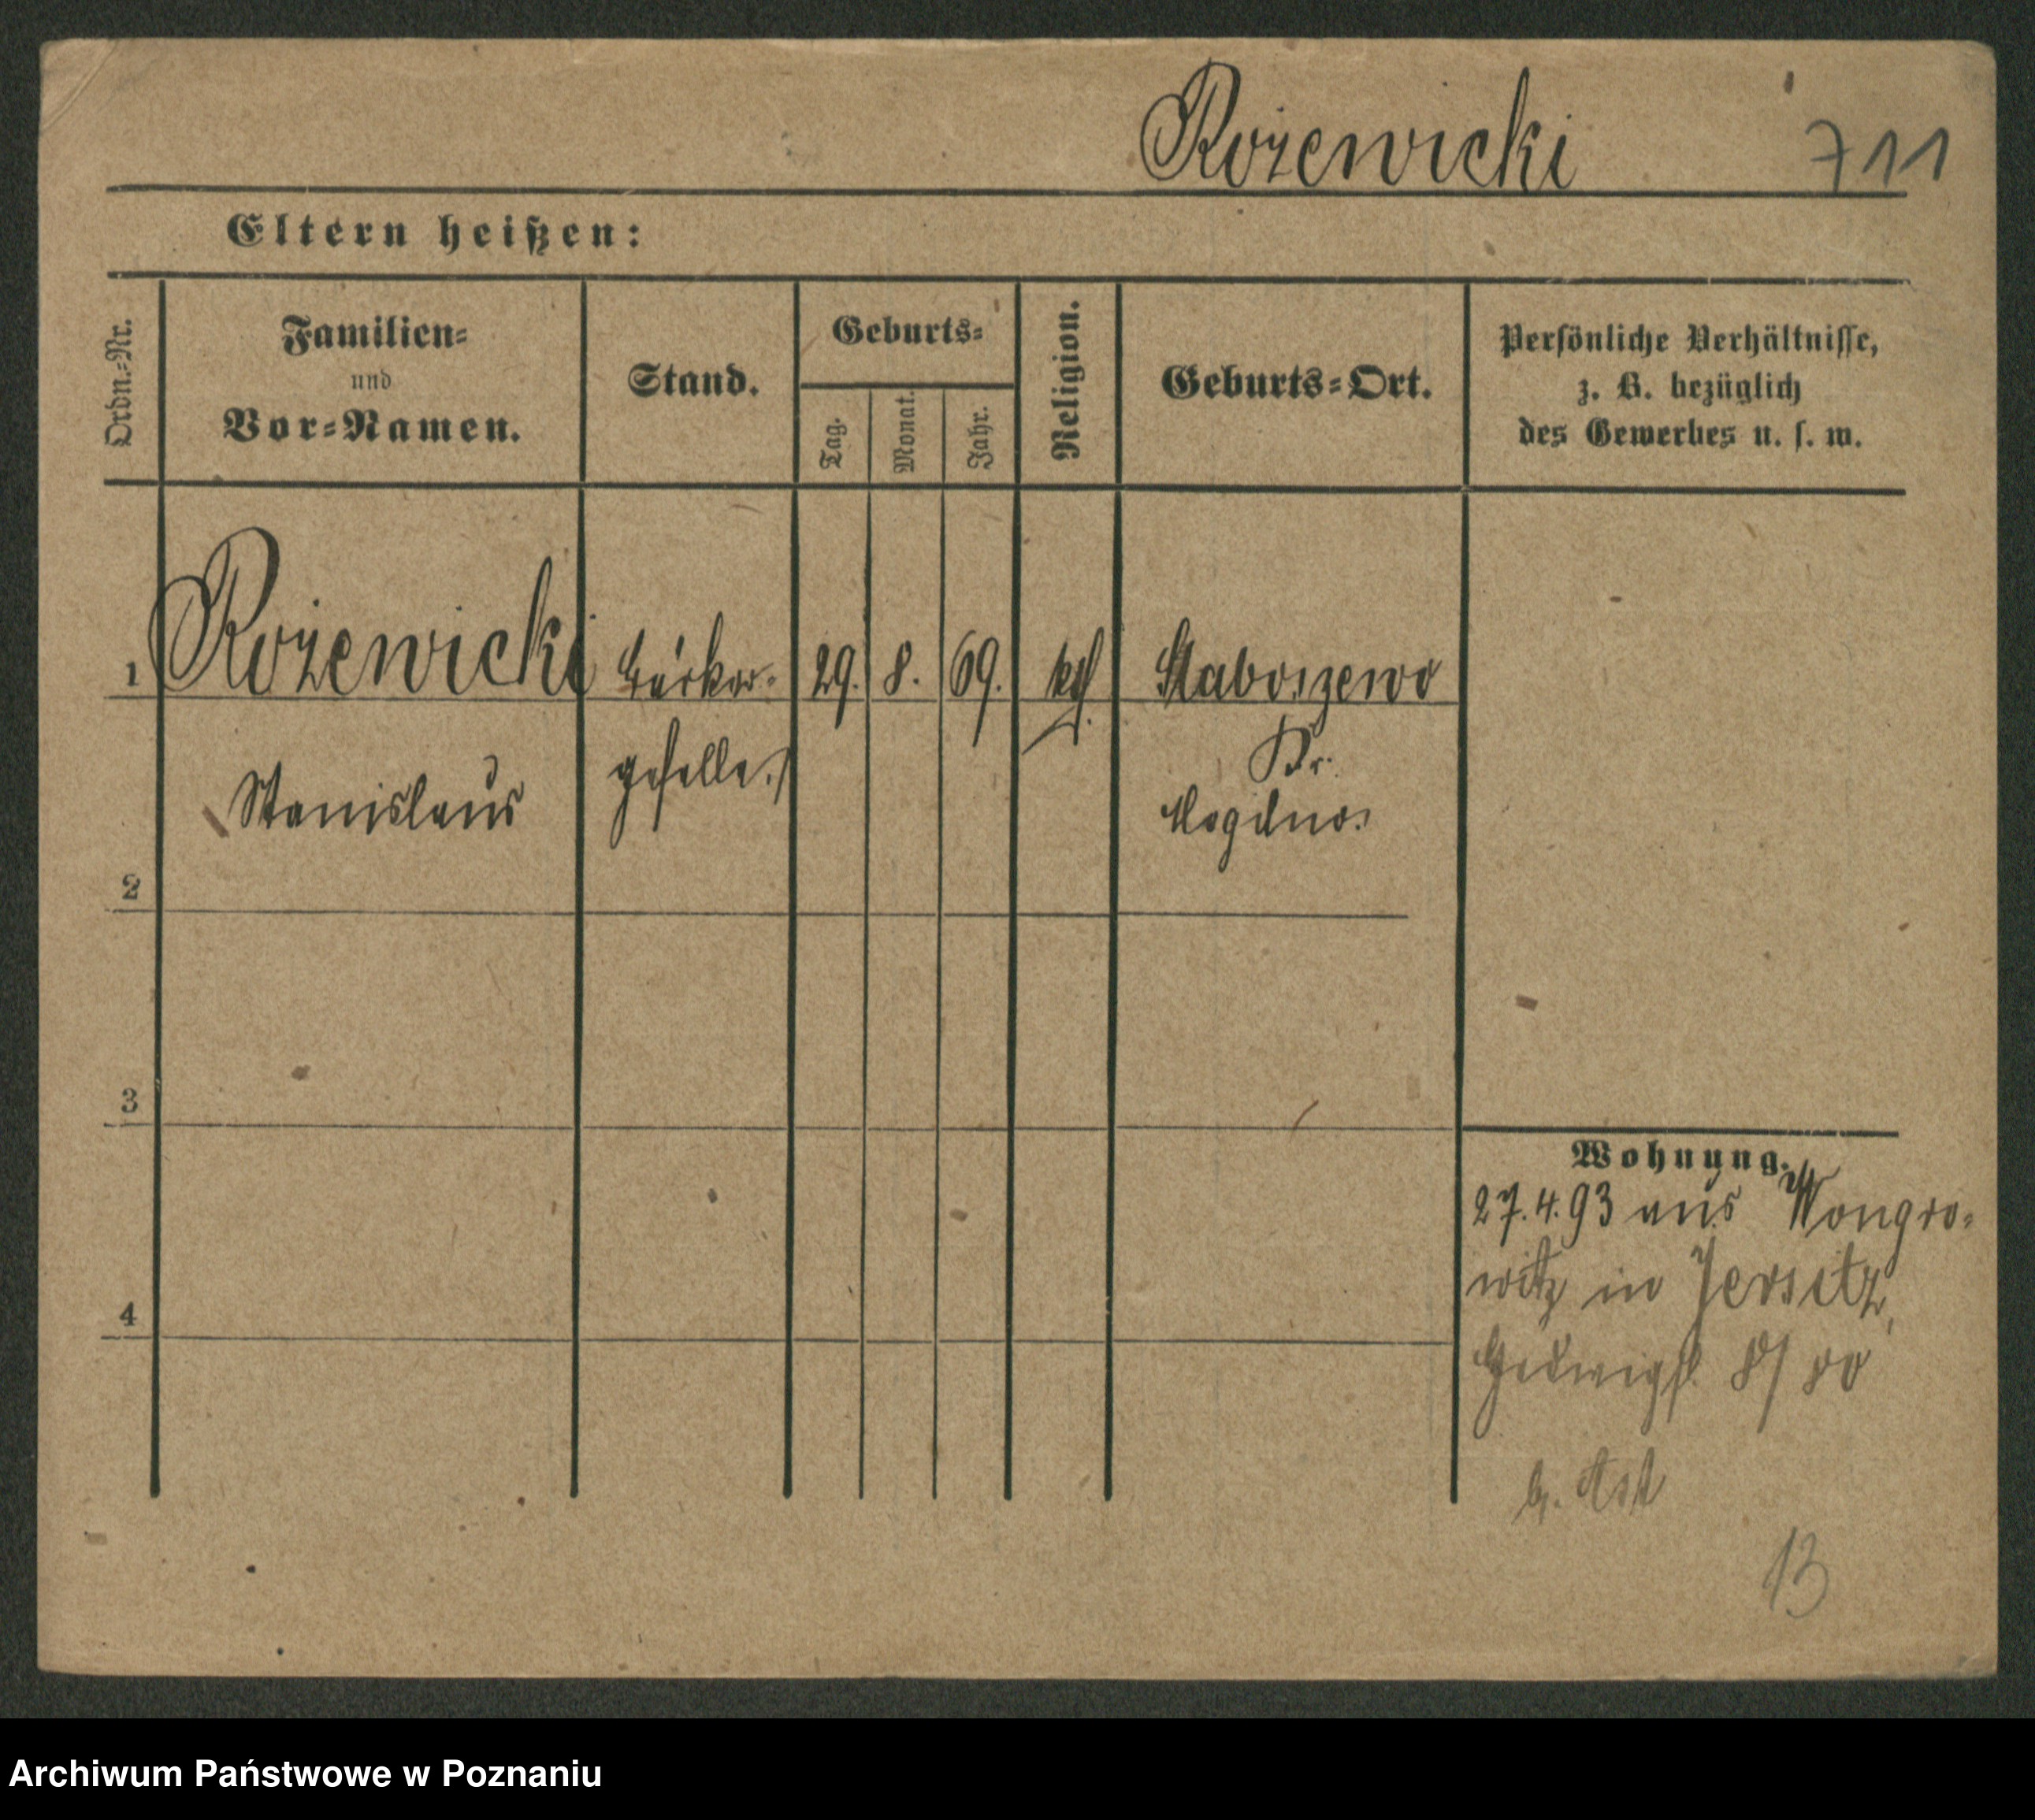 Rożewicki 711
Eltern heißen:
Ordn.-Nr.
Familien-
und
Vor-Namen.
Stand.
Geburts-
Tag.
Monat.
Jahr.
Religion.
Geburts-Ort.
Persönliche Verhältnisse,
z. B. bezüglich
des Gewerbes u. s. w.
1 Rożewicki Bäcker- 29. 8. 69. kth. Staboszewo
geselle. Kr.
Stanislaus Mogilno.
2
3
4
Wohnung.
27.4.93 aus Wongro-
witz in Jersitz,
Hedwigst. 8/
b. Ast
13
Archiwum Państwowe w Poznaniu